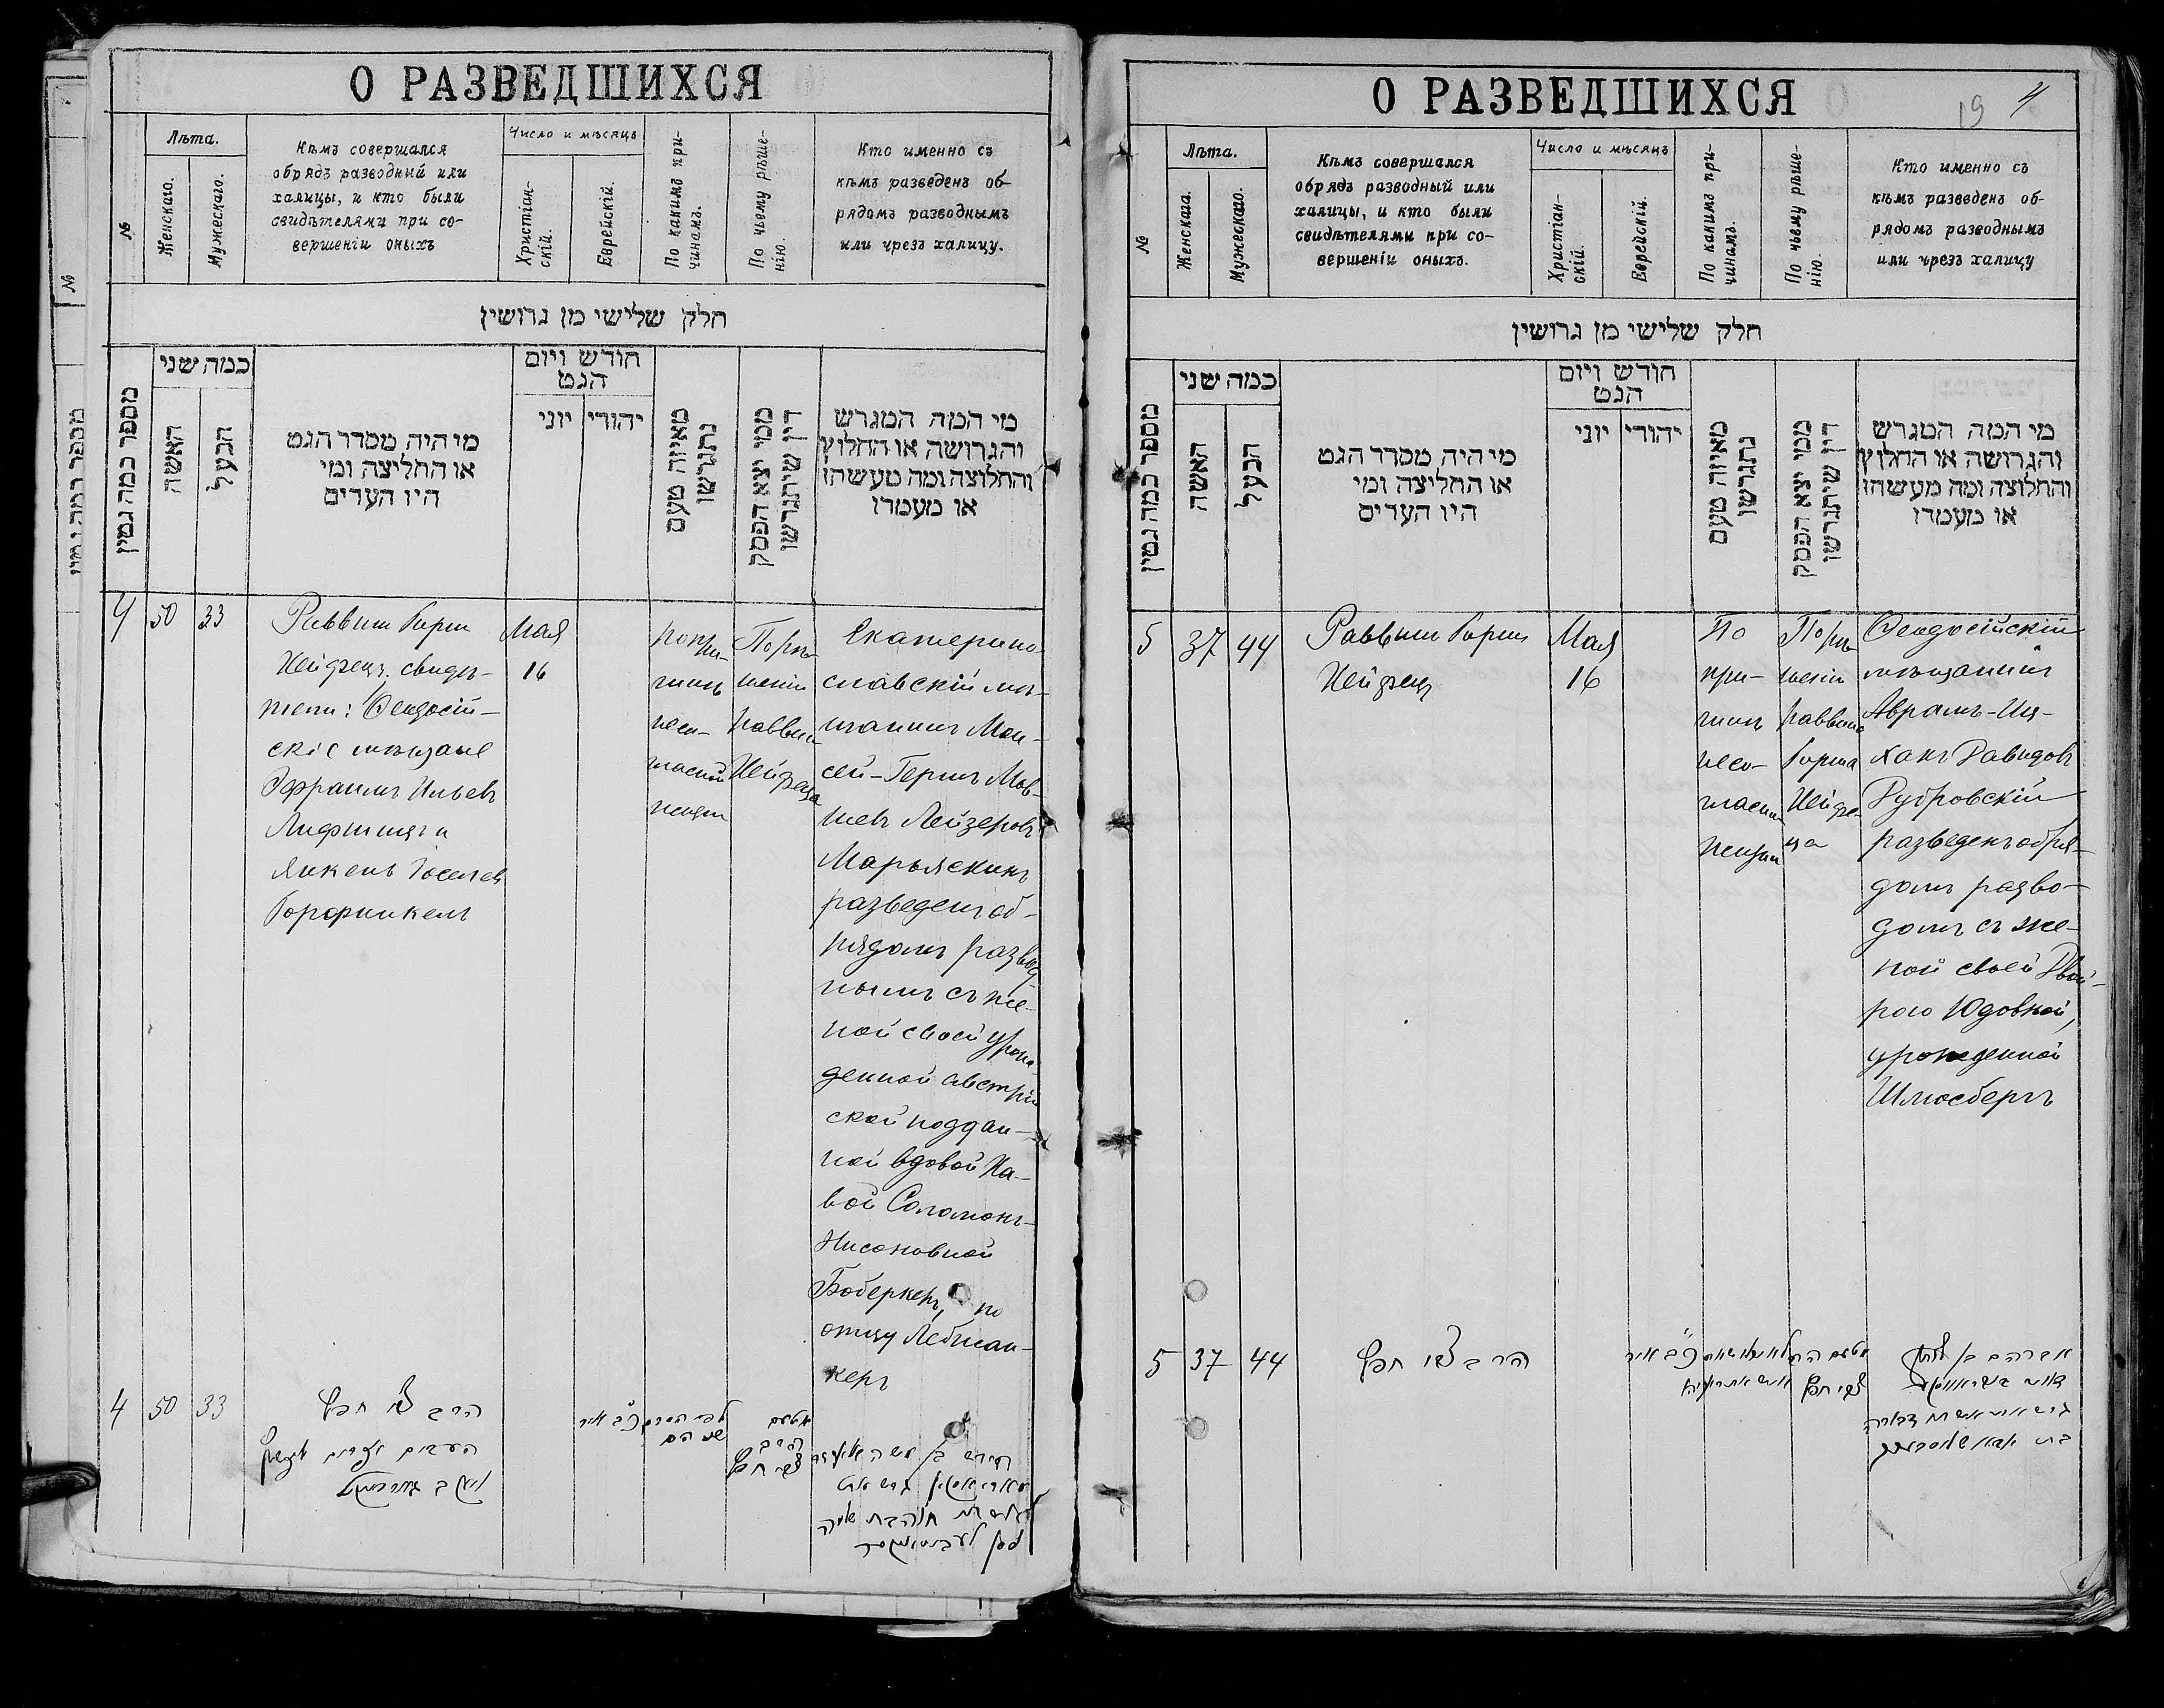 О РАЗВЕДШИХСЯ
№
Лѣта.
Женскаго.
Мужескаго.
Кѣмъ совершался
обрядъ разводный или
халицы, и кто были
свидѣтелями при со-
вершеніи оныхъ
Число и мѣсяцъ
Христіан-
скій.
Еврейскій.
По какимъ при-
чинамъ.
По чьему рѣше-
нію.
Кто именно съ
кѣмъ разведенъ об-
рядомъ разводнымъ
или чрезъ халицу.
חלק שלישי מן גרושין
מספר כמה גטין
כמה שני
האשה
הבעל
מי היה מסדר הגט
או החליצה ומי
היו העדים
חודש ויום
הגט
יוני
יהודי
מאיזה טעם
נתגרשו
ממי יצא הפסק
דין שיתגרשו
מי המה המגרש
והגרושה או החלוץ
והחלוצה ומה מעשהו
או מעמדו
4
50
33
Раввинъ Гершъ
Хейфецъ, свидѣ-
тели: Ѳеодосій-
скіе мѣщане
Эфраимъ Ильевъ
Лифшицъ и
Янкель Іоселев
Горфинкель
Мая
16
по при-
чинѣ
несо-
гласной
жизни
По рѣ-
шенію
раввина
Хейфеца
Екатерино-
славскій мѣ-
щанинъ Мои-
сей-Гершъ Мов-
шевъ Лейзеровъ
Марьяскинъ
разведенъ об-
рядомъ развод
нымъ съ же-
ной своей урож-
денной австрій
ской поддан-
ной вдовой Ха-
вой Соломонъ-
Нисоновной
Боберкеръ, по
отцу Лебман-
керъ
4
50
33
הרב צבי חפץ
О РАЗВЕДШИХСЯ
19 4
№
Лѣта.
Женскаго.
Мужескаго.
Кѣмъ совершался
обрядъ разводный или
халицы, и кто были
свидѣтелями при со-
вершеніи оныхъ.
Число и мѣсяцъ
Христіан-
скій.
Еврейскій.
По какимъ при-
чинамъ.
По чьему рѣше-
нію.
Кто именно съ
кѣмъ разведенъ об-
рядомъ разводнымъ
или чрезъ халицу
חלק שלישי מן גרושין
מספר כמה גטין
כמה שני
האשה
הבעל
מי היה מסדר הגט
או החליצה ומי
היו העדים
חודש ויום
הגט
יוני
יהודי
מאיזה טעם
נתגרשו
ממי יצא הפסק
דין שיתגרשו
מי המה המגרש
והגרושה או החלוץ
והחלוצה ומה מעשהו
או מעמדו
5
37
44
Раввинъ Гершъ
Хейфецъ
Мая
16
По
при-
чинѣ
несо-
гласной
жизни
По рѣ-
шенію
раввина
Герша
Хейфе-
ца
Ѳеодосійскій
мѣщанинъ
Аврамъ-Иц-
хакъ Давидовъ
Дубровскій
разведенъ обря-
домъ разво-
домъ съ же-
ной своей Двой-
рою Юдовной,
урожденной
Шлюсбергъ
5
37
44
הרב צבי חפץ